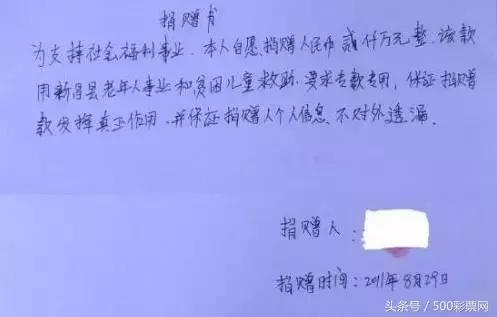 捐赠书
为支持社会福利事业.本人自愿捐赠人民币贰仟万元整.该款
用新昌县老年人事业和贫困儿童救助.要求专款专用,保证捐赠
款发挥真正作用.并保证捐赠人个人信息.不对外透漏.
捐赠人:
捐赠时间:2011年8月29日
头条号/500彩票网